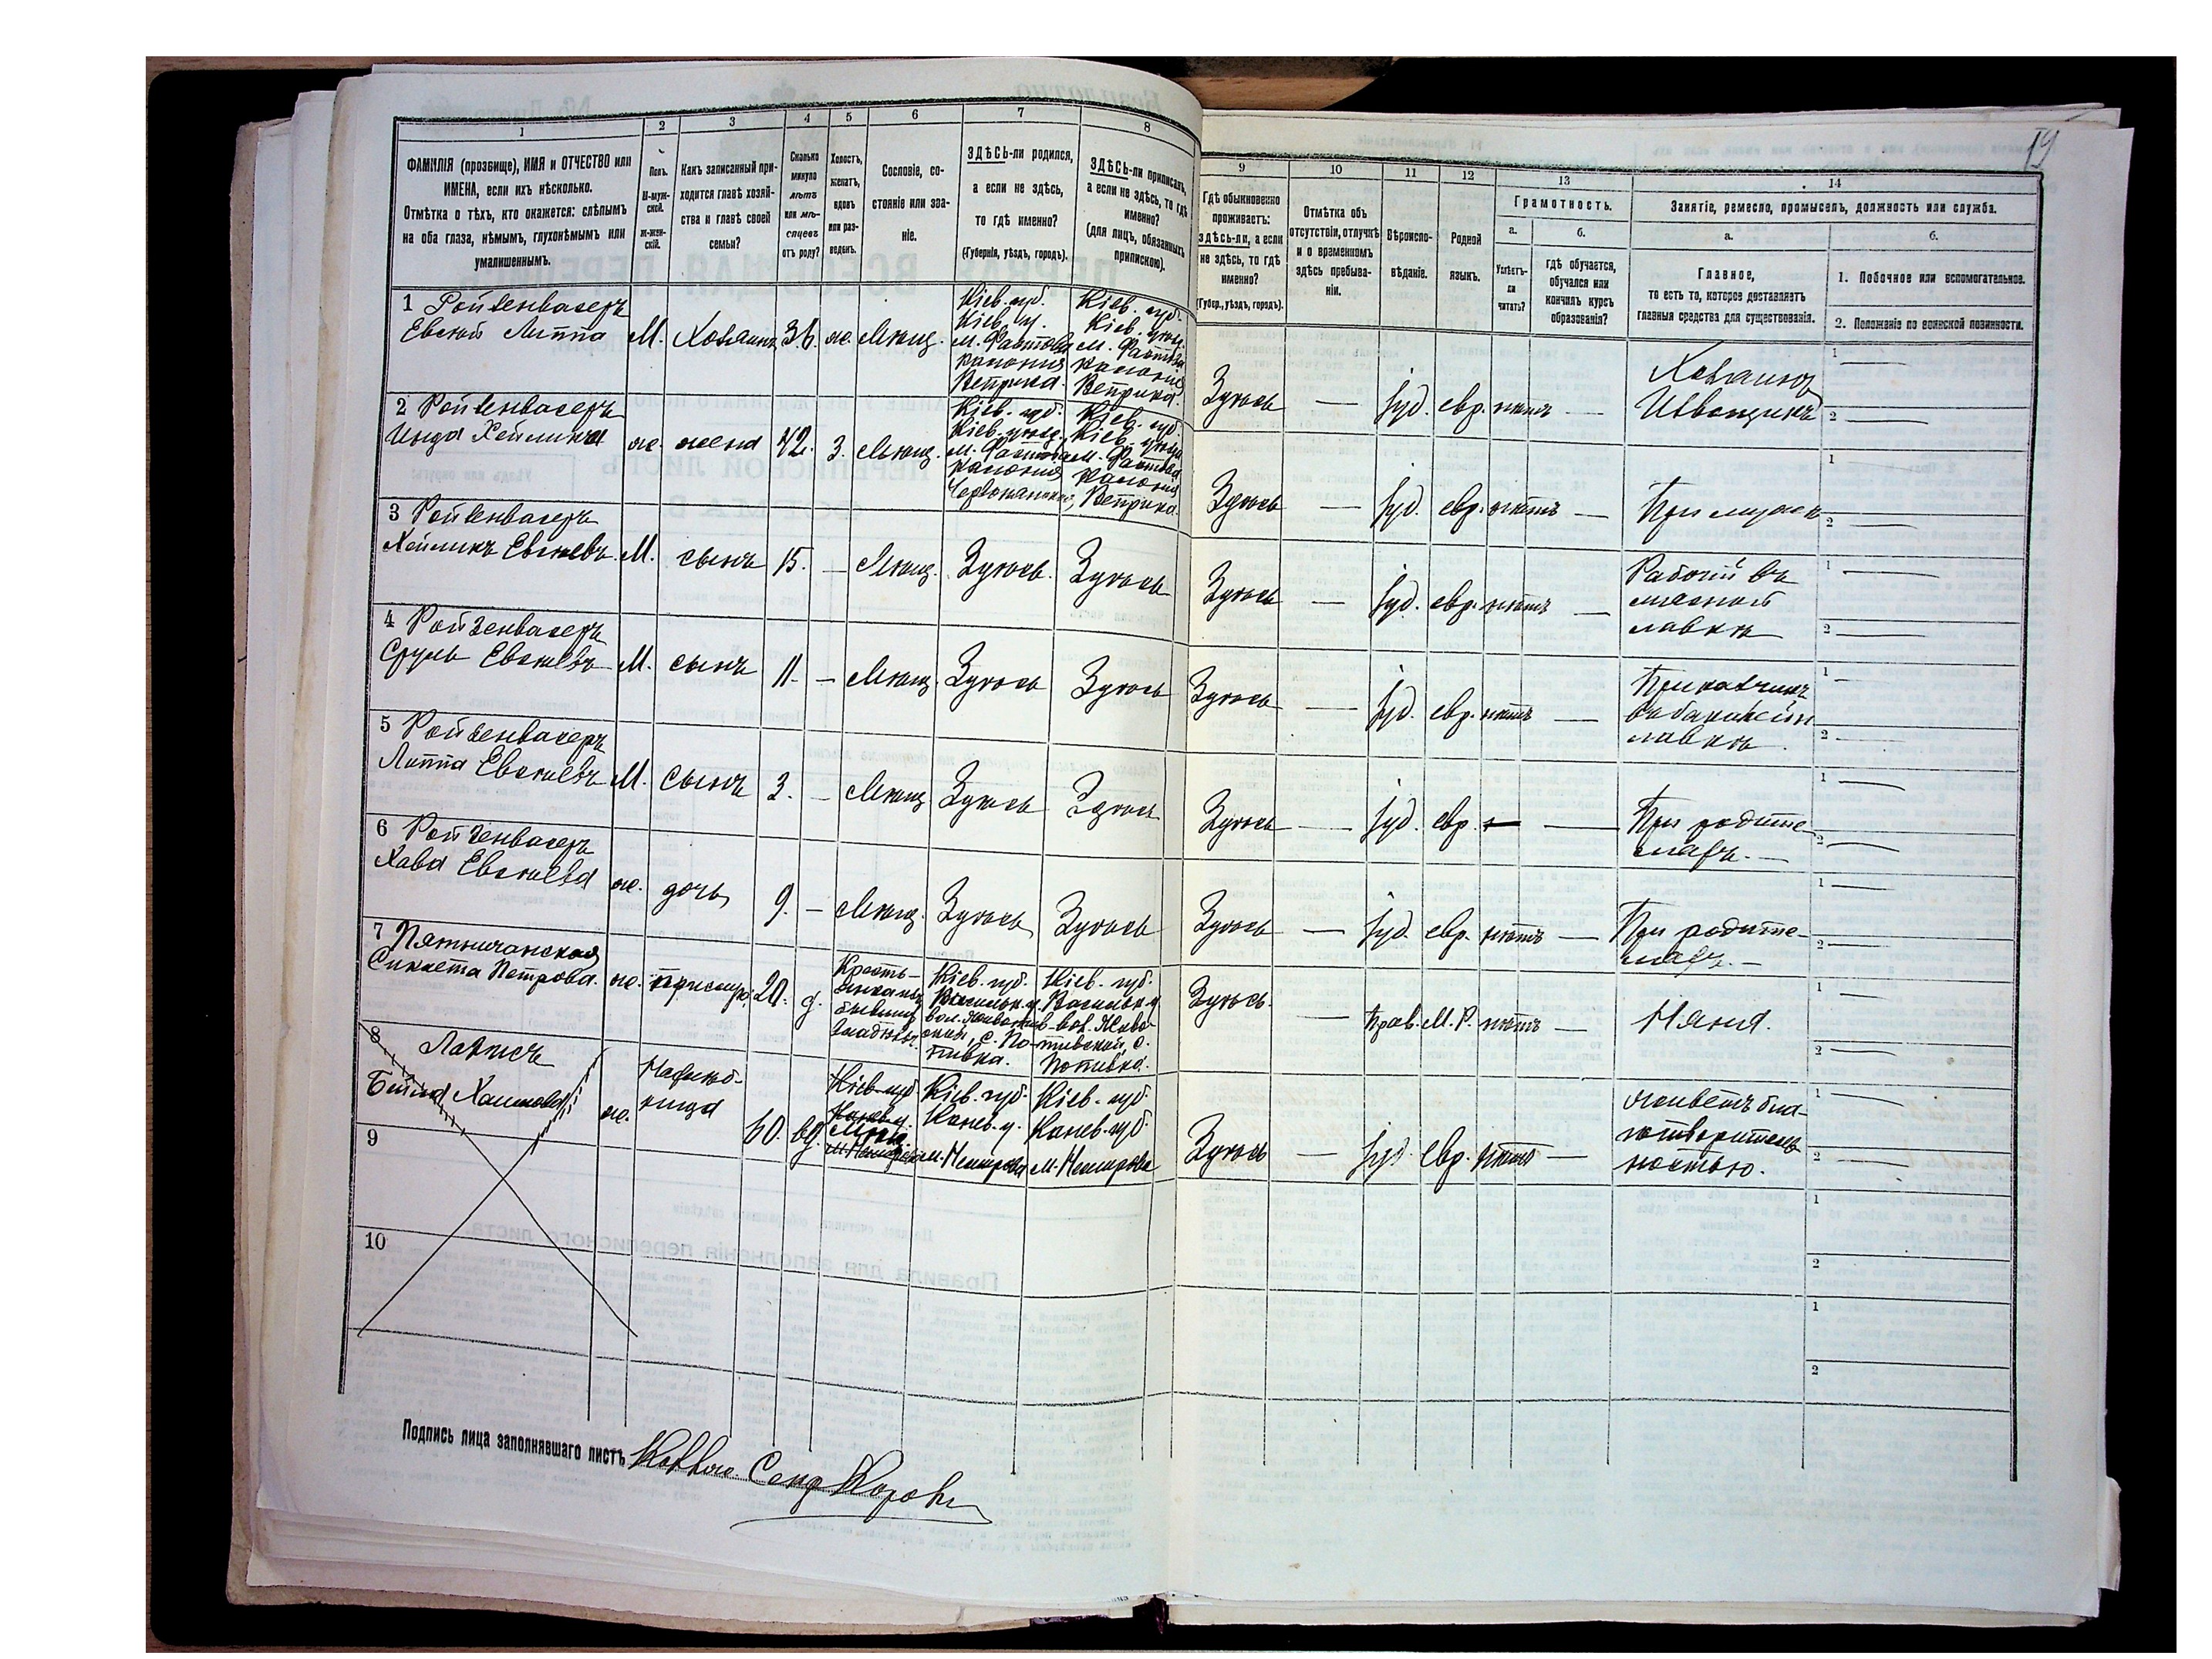 19
1 2 3 4 5 6 7 8
ФАМИЛІЯ (прозвище), ИМЯ и ОТЧЕСТВО или
ИМЕНА, если ихъ нѣсколько.
Отмѣтка о тѣхъ, кто окажется: слѣпымъ
на оба глаза, нѣмымъ, глухонѣмымъ или
умалишеннымъ.
Полъ.
М-муж-
ской.
Ж-жен-
скій.
Какъ записанный при-
ходится главѣ хозяй-
ства и главѣ своей
семьи?
Сколько
минуло
лѣтъ
или мѣ-
сяцевъ
отъ роду?
Холостъ,
женатъ,
вдовъ
или раз-
веденъ.
Сословіе, со-
стояніе или зва-
ніе.
ЗДѢСЬ-ли родился,
а если не здѣсь,
то гдѣ именно?
(Губернія, уѣздъ, городъ).
ЗДѢСЬ-ли приписанъ,
а если не здѣсь, то гдѣ
именно?
(для лицъ, обязанныхъ
припискою).
9 10 11 12 13 14
Гдѣ обыкновенно
проживаетъ:
здѣсь-ли, а если
не здѣсь, то гдѣ
именно?
(Губер., уѣздъ, городъ).
Отмѣтка объ
отсутствіи, отлучкѣ
и о временномъ
здѣсь пребыва-
ніи.
Вѣроиспо-
вѣданіе.
Родной
языкъ.
Грамотность.
а.
Умѣетъ-
ли
читать?
б.
Гдѣ обучается,
обучался или
кончилъ курсъ
образованія?
Занятіе, ремесло, промыселъ, должность или служба.
а.
Главное,
то есть то, которое доставляетъ
главныя средства для существованія.
б.
1. Побочное или вспомогательное.
2. Положеніе по воинской повинности.
1 Ройзенвасеръ
Евсей Липпа
М. Хозяинъ 36. ж. Мѣщ.
Кіев. губ.
Кіев. у.
м. Фастова
калонія
Веприка.
Кіев. губ.
Кіев. уѣзд.
м. Фастова
калонія
Веприка.
Здѣсь — Іуд. евр. нѣтъ —
Хозяинъ
Извощикъ
1 —
2 —
2 Ройзенвасеръ
Хейликва
ж. жена 42. З. Мѣщ.
Кіев. губ.
Кіев. уѣзд.
м. Фастова
калонія
Кіев. губ.
Кіев. уѣзд.
м. Фастова
калонія
Веприка.
Здѣсь — Іуд. евр. нѣтъ —
При мужѣ
1
2 —
3 Ройзенвасеръ
М. сынъ 15. — Мѣщ. Здѣсь. Здѣсь
Здѣсь — Іуд. евр. нѣтъ —
Рабочій въ
мясной
лавкѣ
1 —
2 —
4 Ройзенвасеръ
Сруль Евсеевъ
М. сынъ 11. — Мѣщ. Здѣсь Здѣсь
Здѣсь — Іуд. евр. нѣтъ —
Приказчикъ
въ бакалейн
лавкѣ.
1 —
2 —
5 Ройзенвасеръ
Липпа Евсеевъ
М. сынъ 3. — Мѣщ. Здѣсь Здѣсь
Здѣсь — Іуд. евр. — —
При родите-
ляхъ. —
1 —
2 —
6 Ройзенвасеръ
Хава Евсеева
ж. дочь 9. — Мѣщ. Здѣсь Здѣсь
Здѣсь — Іуд. евр. нѣтъ —
При родите-
ляхъ. —
1 —
2 —
7 Пятничанская
Петрова.
ж. 20. д.
Кресть-
бывших
Кіев. губ.
Васильк. у.
с. По-
тивка.
Кіев. губ.
Васильк. у
с.
Потивка.
Здѣсь. — Прав. М. Р. нѣтъ —
Няня.
1 —
2 —
8
Хаимова
ж. 60. вд.
Кіев. губ.
Канев. у.
Мѣщ.
Кіев. губ.
Канев. у.
Кіев. губ.
Канев. губ.
Здѣсь — Іуд. евр. нѣтъ —
живетъ бла-
готворитель
ностью.
1 —
2 —
9
1
2
10
1
2
Подпись лица заполнявшаго листъ